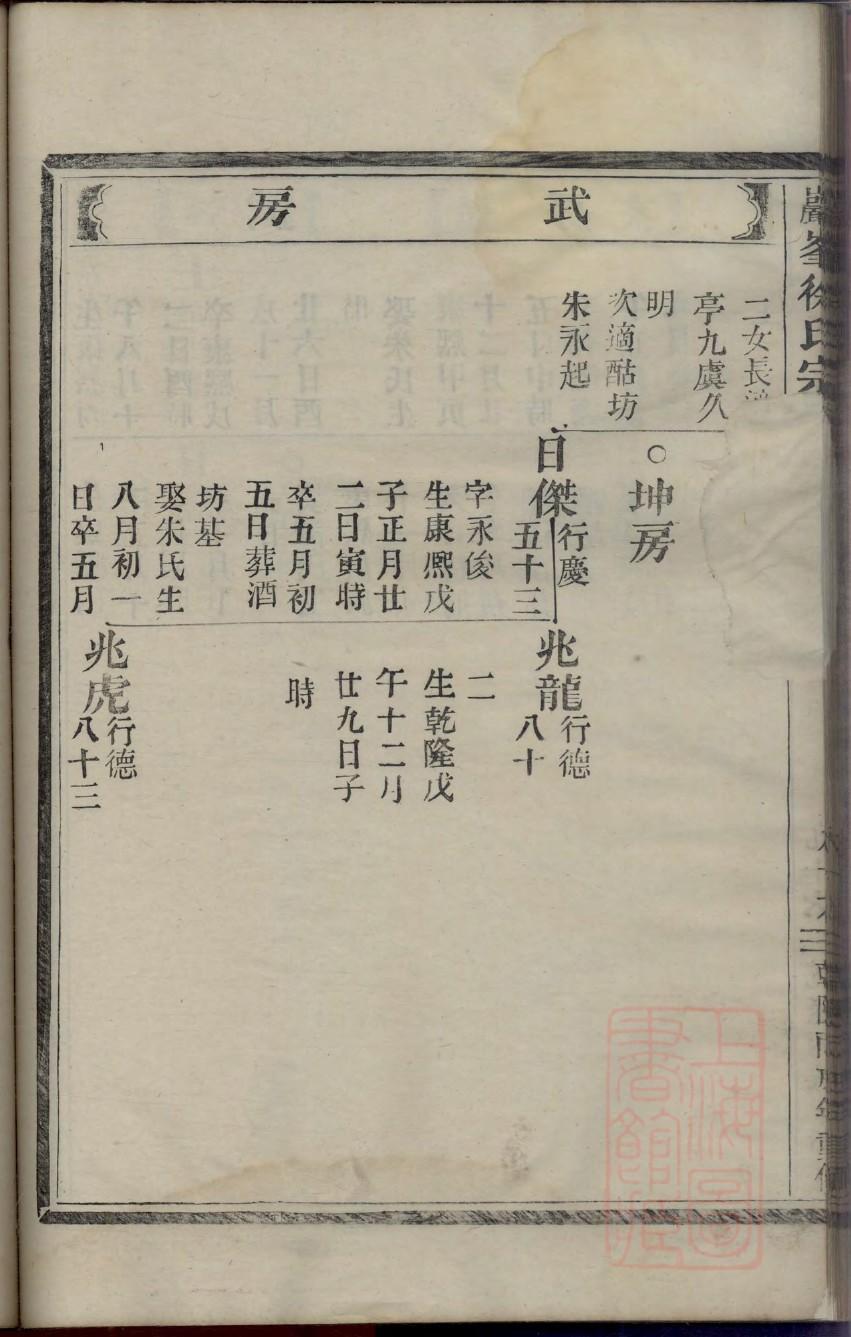 巖峯徐氏宗
武房
二女長適
亭九虞久
明
次適酤坊
朱永起
坤房
日傑
行慶
五十三
字永俊
生康熙戊
子正月廿
二日寅時
卒五月初
五日葬酒
坊基
娶朱氏生
八月初一
日卒五月
兆龍
行德
八十
二
生乾隆戊
午十二月
廿九日子
時
兆虎
行德
八十三
上海圖
書館藏